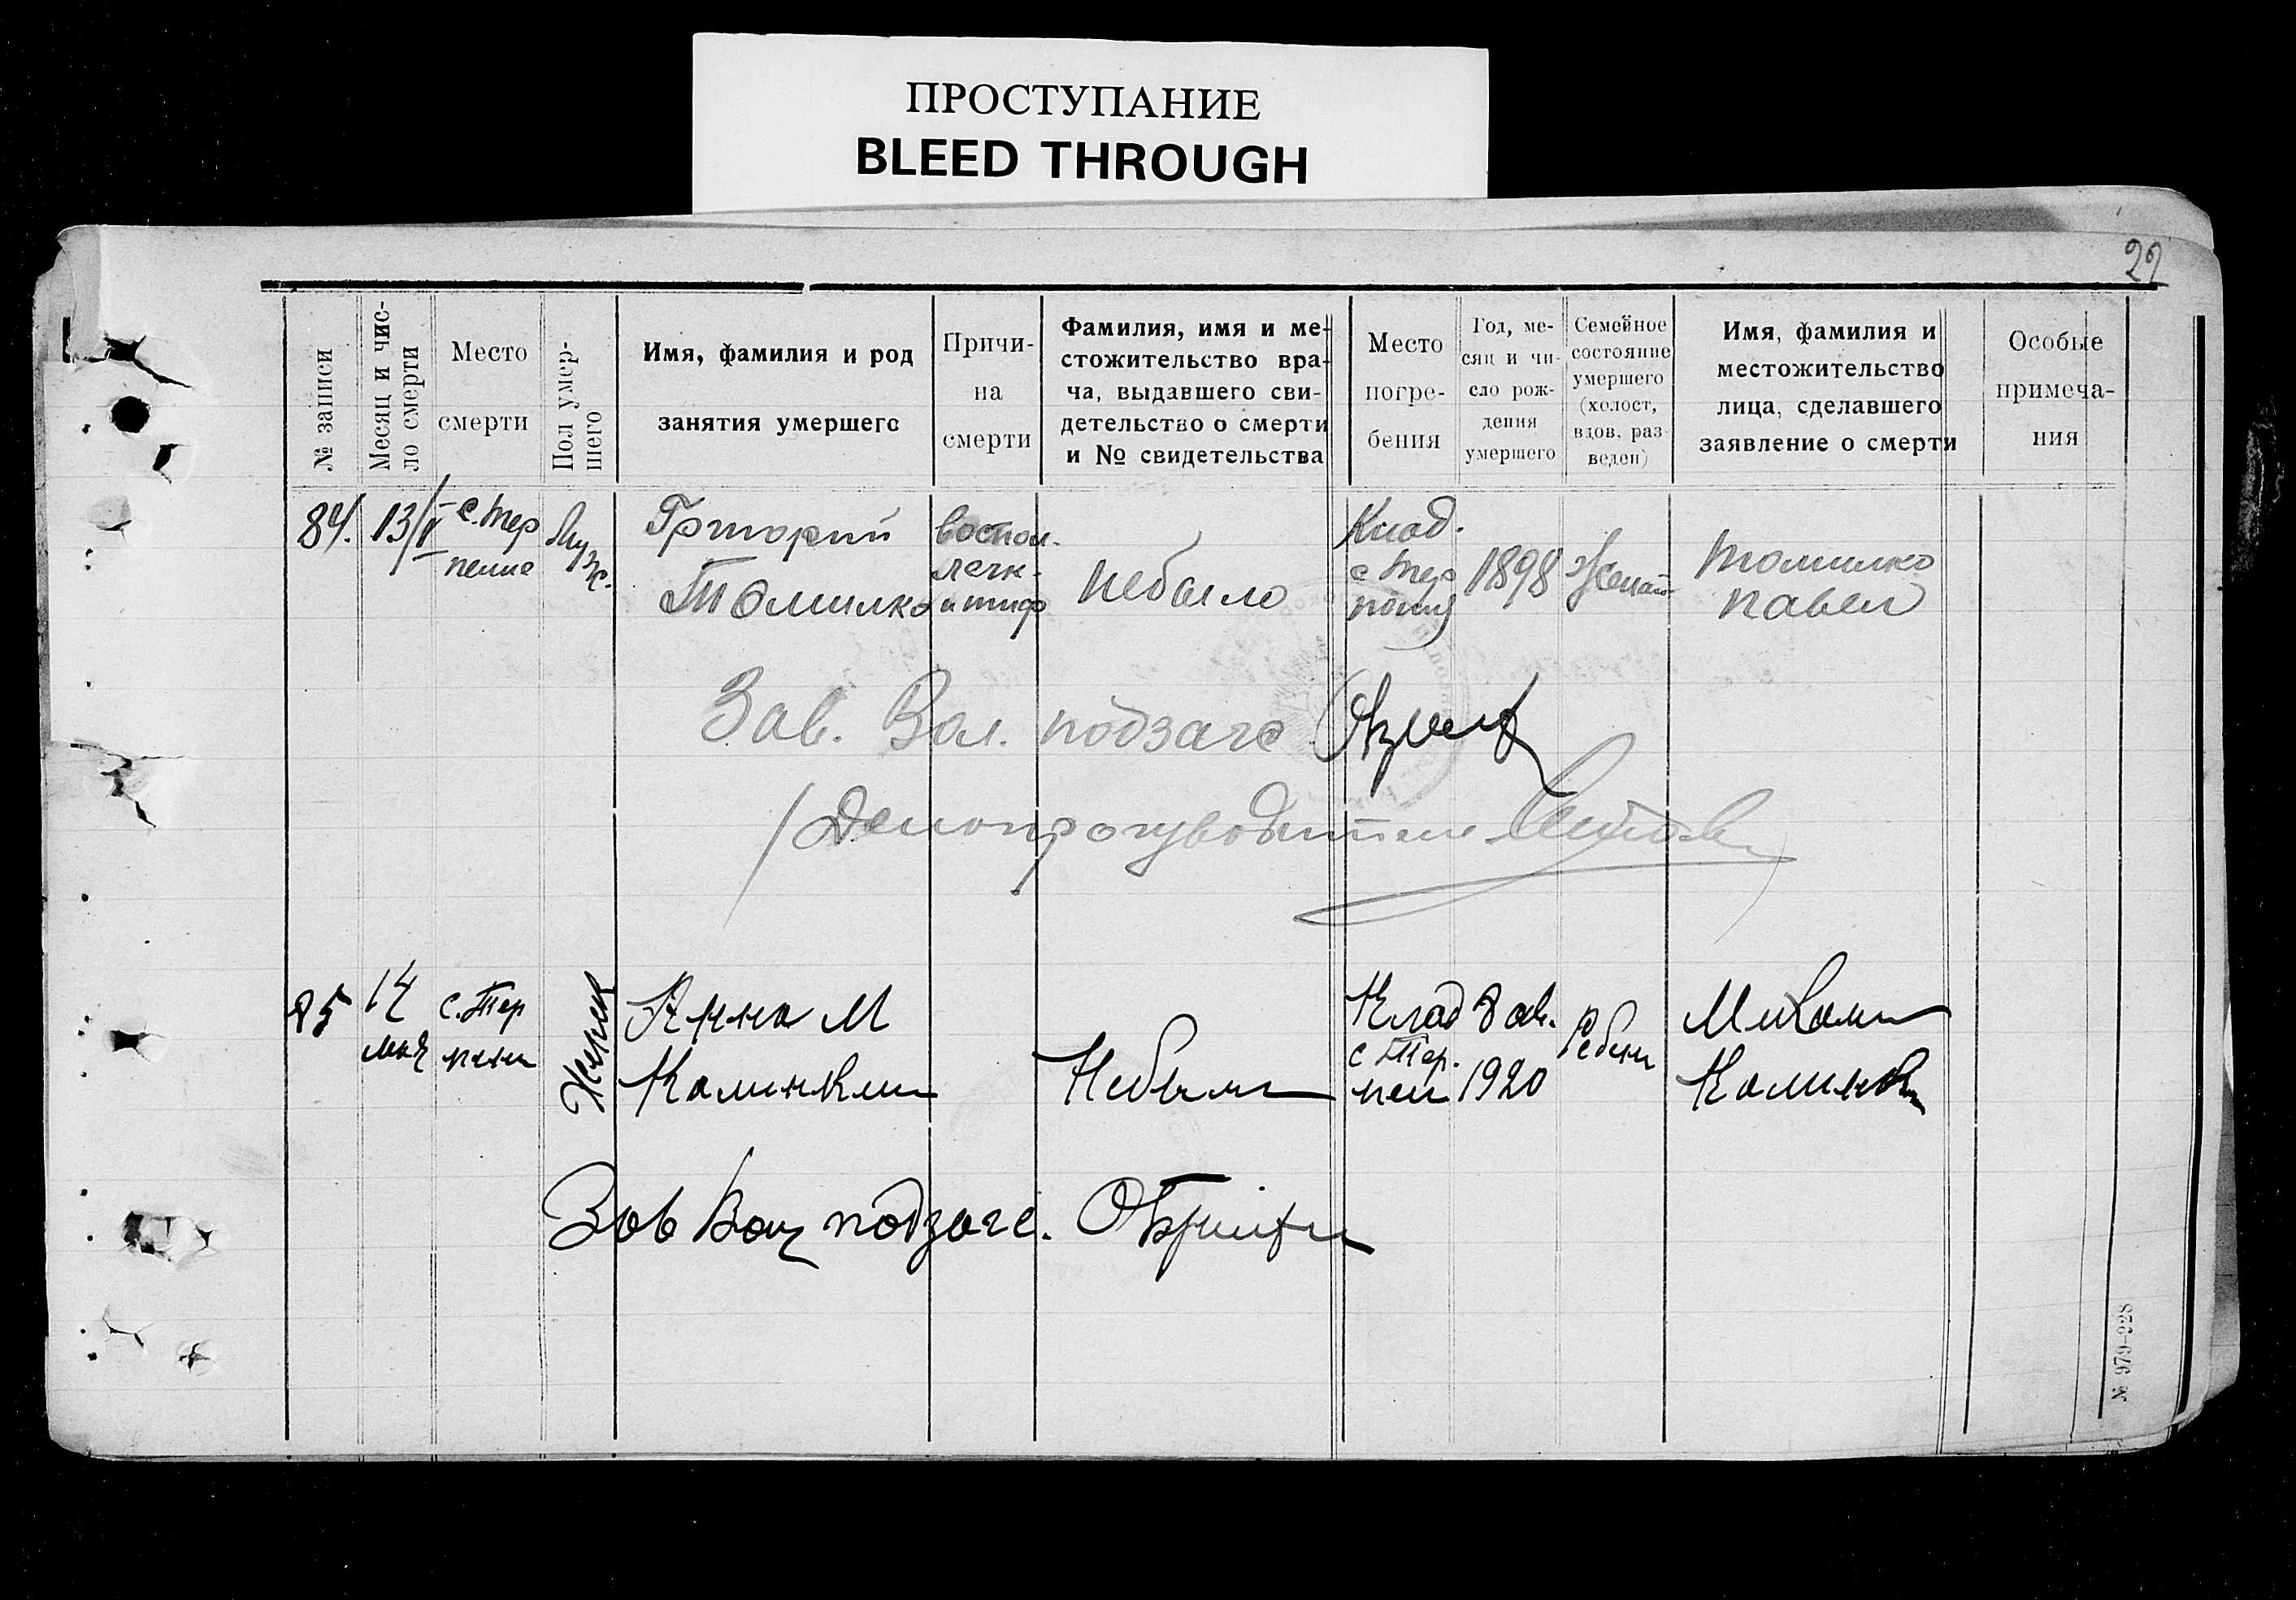 ПРОСТУПАНИЕ
BLEED THROUGH
22
№ записи
Месяц и чис-
ло смерти
Место
смерти
Пол умер-
шего
Имя, фамилия и род
занятия умершего
Причи-
на
смерти
Фамилия, имя и ме-
стожительство вра-
ча, выдавшего сви-
детельство о смерти
и № свидетельства
Место
погре-
бения
Год, ме-
сяц и чи-
сло рож-
дения
умершего
Семейное
состояние
умершего
(холост,
вдов, раз-
веден)
Имя, фамилия и
местожительство
лица, сделавшего
заявление о смерти
Особые
примеча-
ния
84.
13/V
с. Тер
пение
Муж.
Григорий
Томилко
воспол.
легк.
и тиф
небыло
Клад.
с Тер
пения
1898
Женат
Томилко
павел
Зав. Вол. подзагс
Делопроизводитель
85
14
мая
с. Тер
пени
Женск
Анна М
Калинкин
Небыло
Клад
с Тер.
пен
1920
Ребен
Калинкин
Зав Вол подзагс.
№ 979-928